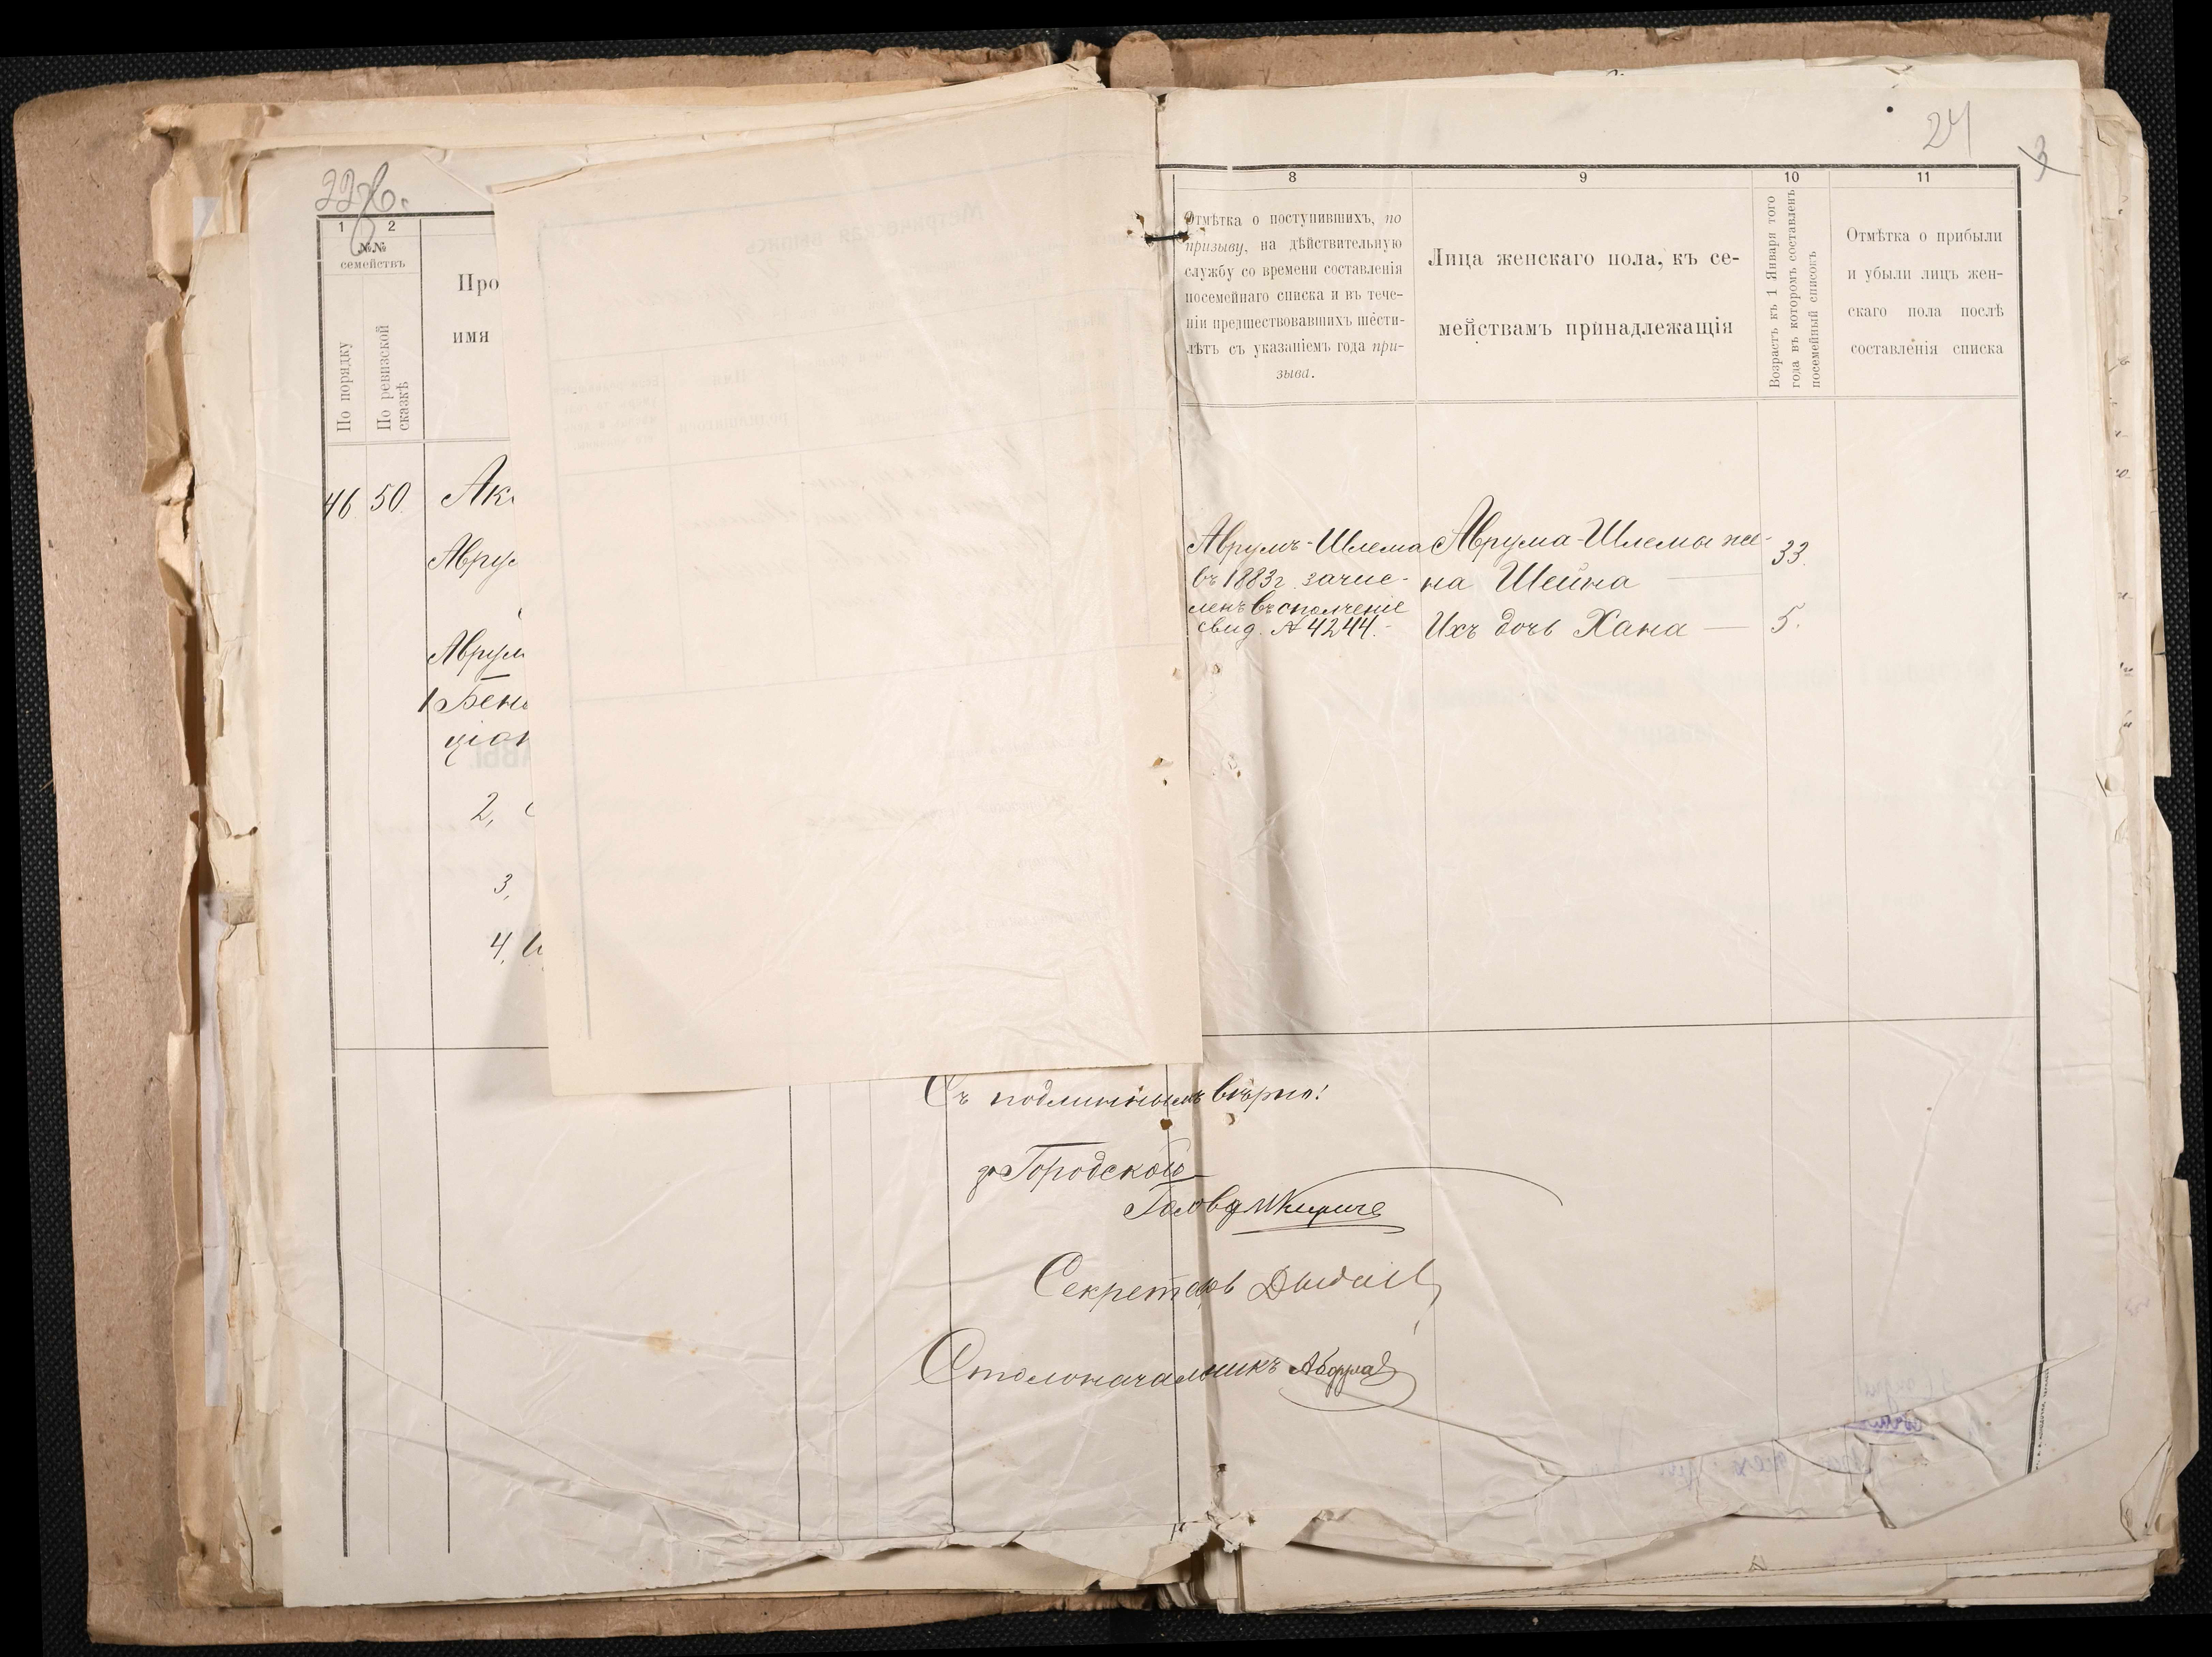 24
3
1
2
№№
семействъ
По порядку
По ревизской
сказкѣ
Про
имя
8
Отмѣтка о поступившихъ, по
призыву, на дѣйствительную
службу со времени составленія
посемейнаго списка и въ тече-
ніи предшествовавшихъ шести-
лѣтъ съ указаніемъ года при-
зыва.
9
Лица женскаго пола, къ се-
мействамъ принадлежащія
10
Возрастъ къ 1 Января того
года въ которомъ составленъ
посемейный списокъ
11
Отмѣтка о прибыли
и убыли лицъ жен-
скаго пола послѣ
составленія списка
46
50
Ак
Авру
Аврум
1 Бен
ціон
2,
3,
4,
Аврумъ-Шлема
въ 1883г зачис-
ленъ въ ополченіе
свид. № 4244.-
Аврума-Шлемы же-
на Шейна
33.
Ихъ дочь Хана —
5.
Съ подлиннымъ вѣрно!
Городской
Голова
Секретарь
Столоначальникъ